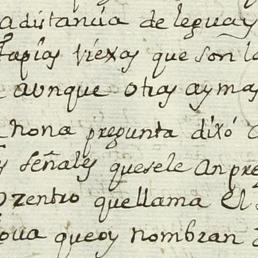 a distancia de legua y
tapias viexas que son la
aunque otras ay mas
nona pregunta dixo
señales que se le an pre
zentro que llama el
que oy nombran